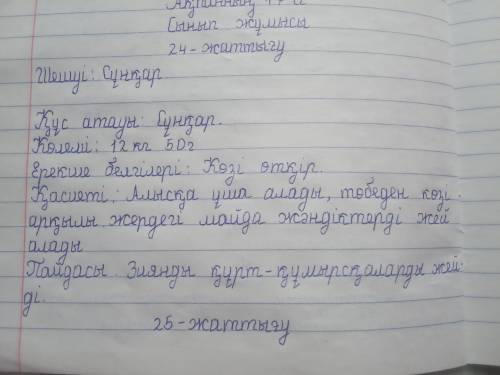 Ақпанның 17-сі
Сынып жұмысы
24-жаттығу
Шешуі: Сұңқар
Құс атауы: Сұңқар.
Көлемі: 12 кг 50г
Ерекше белгілері: Көзі өткір.
Қасиеті: Алысқа ұша алады, төбеден көзі
арқылы жердегі майда жәндіктерді жей
алады
Пайдасы Зиянды құрт-құмырсқаларды жей-
ді.
25-жаттығу